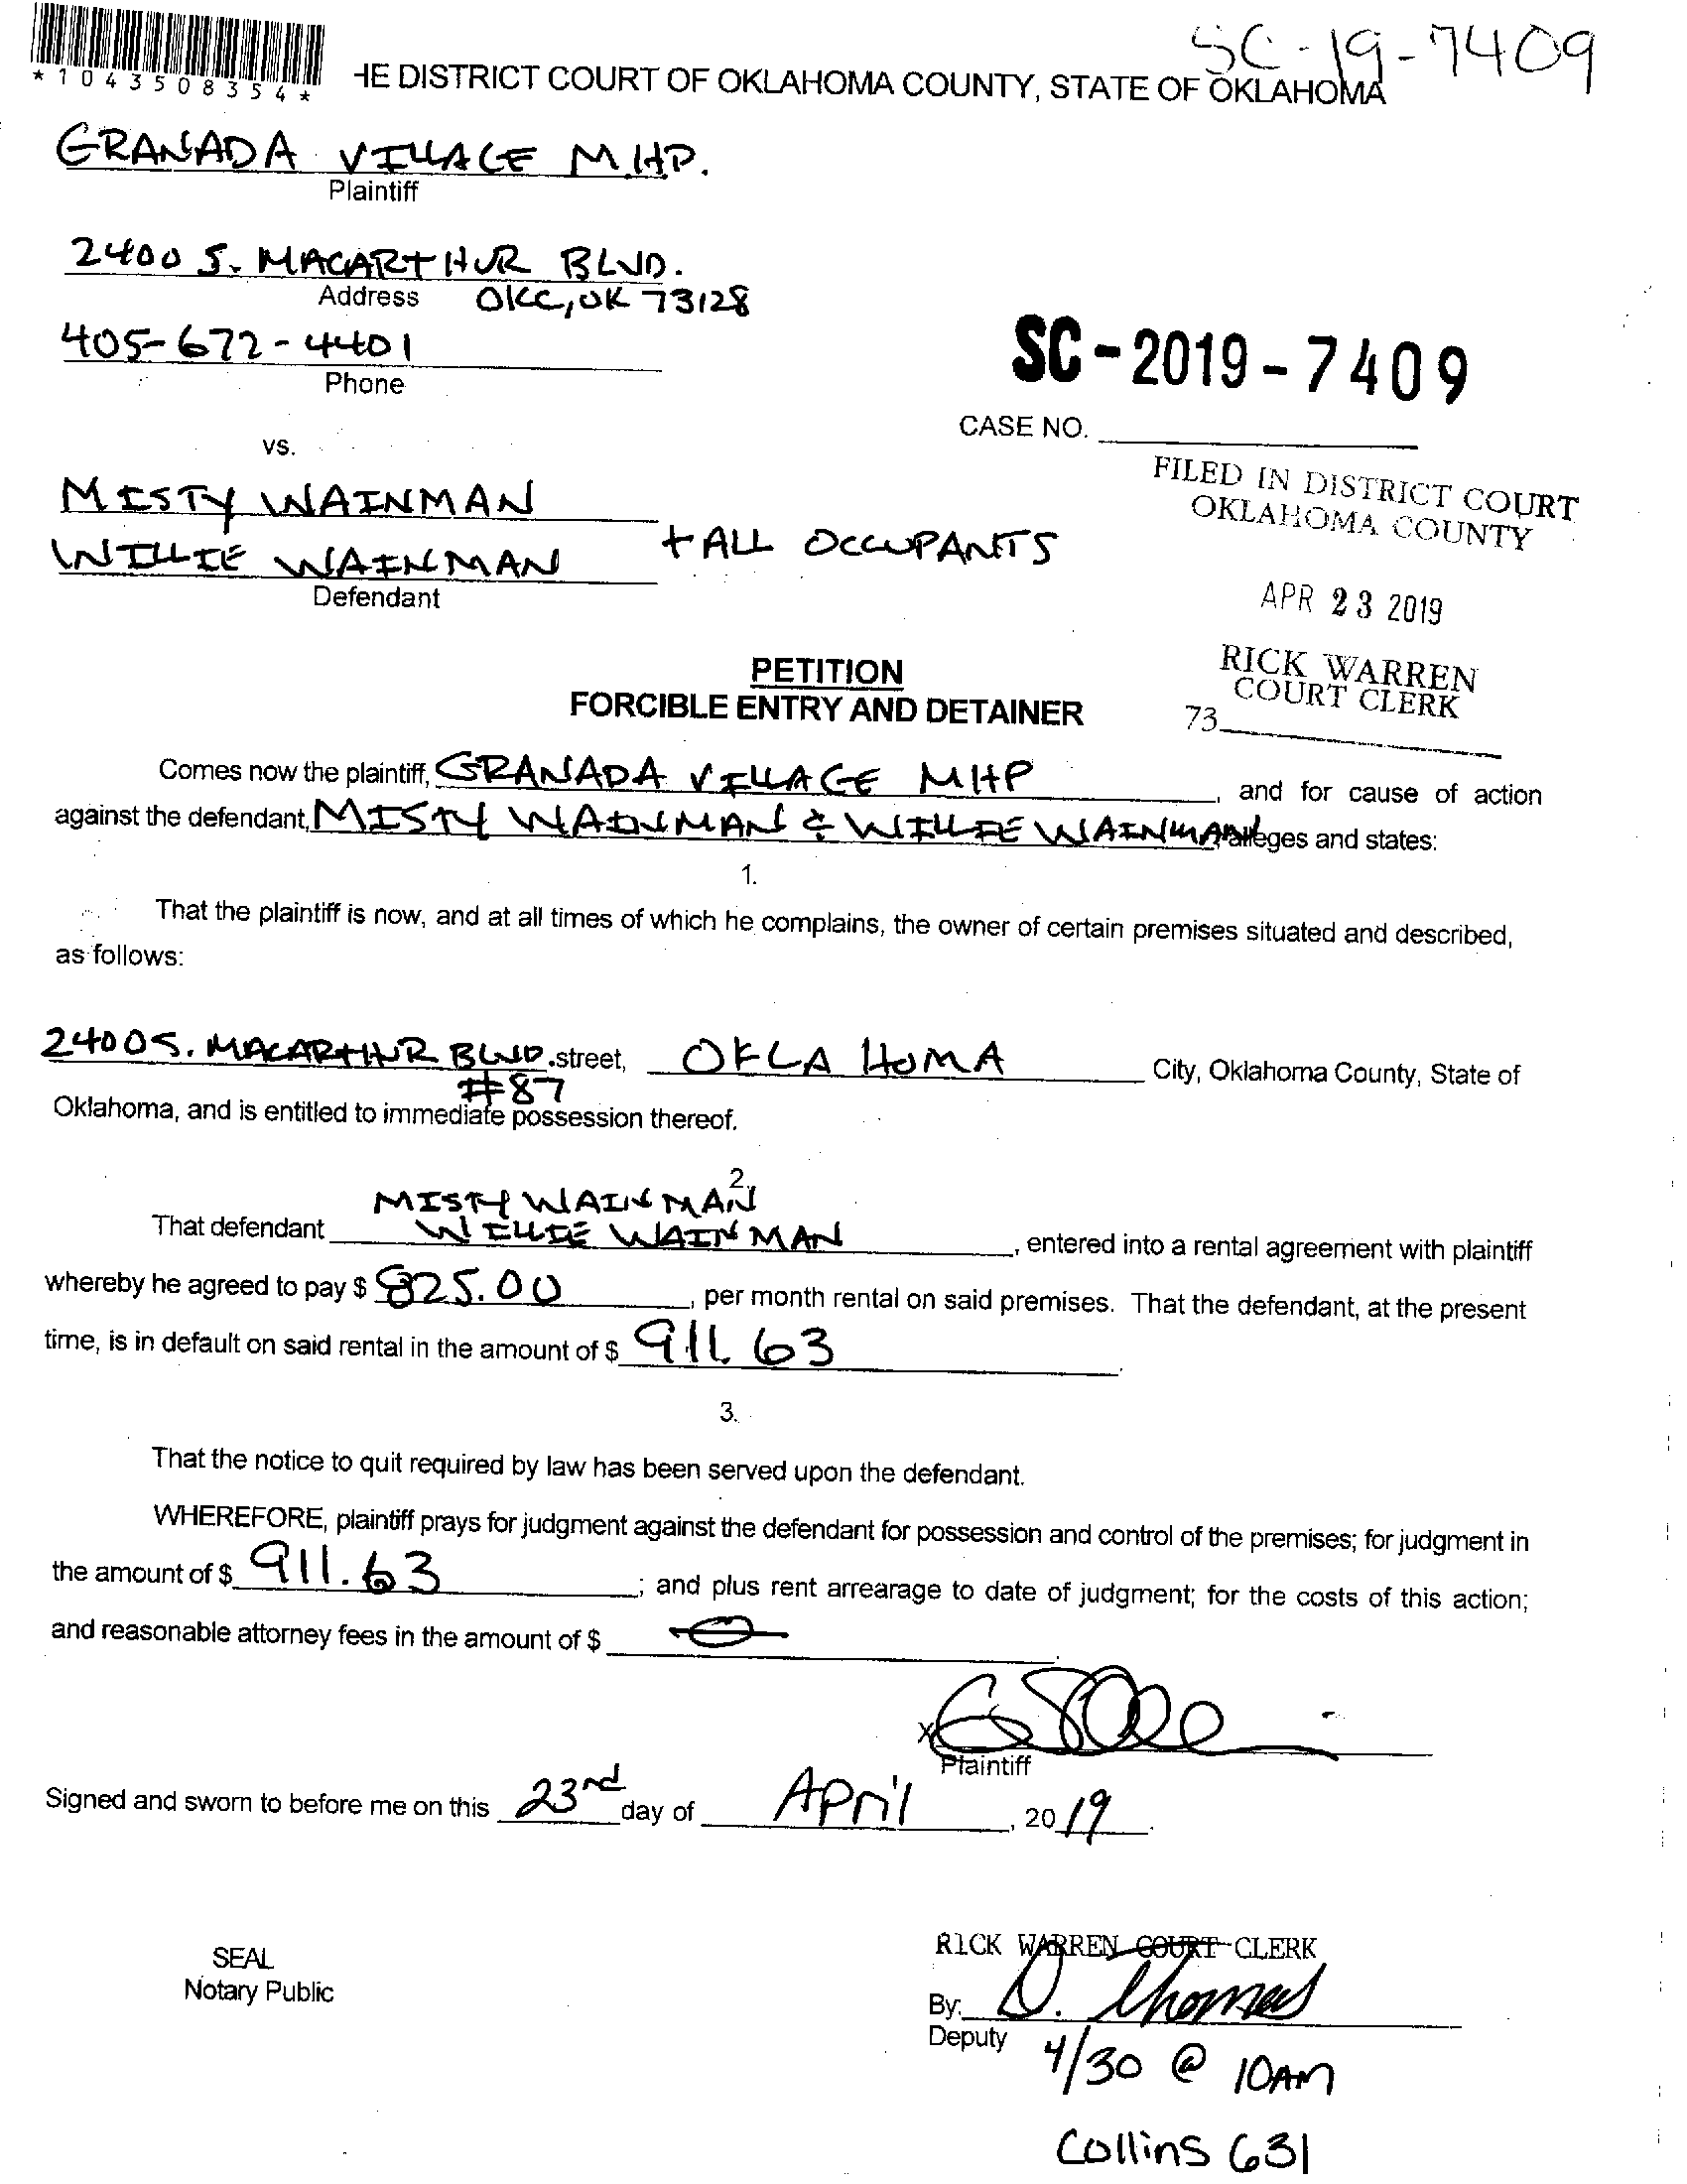 SC-19-7409
*1043508354*
HE DISTRICT COURT OF OKLAHOMA COUNTY, STATE OF OKLAHOMA
GRANADA VILLAGE M.H.P.
Plaintiff
2400 S. MACARTHUR BLVD.
Address OKC, OK 73128
405-672-4401
Phone
SC-2019-7409
CASE NO.
vs.
FILED IN DISTRICT COURT
OKLAHOMA COUNTY
MISTY WAINMAN
WILLIE WAINMAN + ALL OCCUPANTS
Defendant
APR 23 2019
RICK WARREN
COURT CLERK
73
PETITION
FORCIBLE ENTRY AND DETAINER
Comes now the plaintiff, GRANADA VILLAGE MHP, and for cause of action
against the defendant, MISTY WAINMAN & WILLIE WAINMAN alleges and states:
1.
That the plaintiff is now, and at all times of which he complains, the owner of certain premises situated and described,
as follows:
2400 S. MACARTHUR BLVD. street, OKLAHOMA City, Oklahoma County, State of
#87
Oklahoma, and is entitled to immediate possession thereof.
2.
MISTY WAINMAN
That defendant WILLIE WAINMAN, entered into a rental agreement with plaintiff
whereby he agreed to pay $ 825.00, per month rental on said premises. That the defendant, at the present
time, is in default on said rental in the amount of $ 911.63.
3.
That the notice to quit required by law has been served upon the defendant.
WHEREFORE, plaintiff prays for judgment against the defendant for possession and control of the premises; for judgment in
the amount of $ 911.63; and plus rent arrearage to date of judgment; for the costs of this action;
and reasonable attorney fees in the amount of $ 0.
x
Plaintiff
Signed and sworn to before me on this 23rd day of April, 2019.
SEAL
Notary Public
RICK WARREN COURT CLERK
By: D. Thomas
Deputy
4/30 @ 10AM
Collins 631